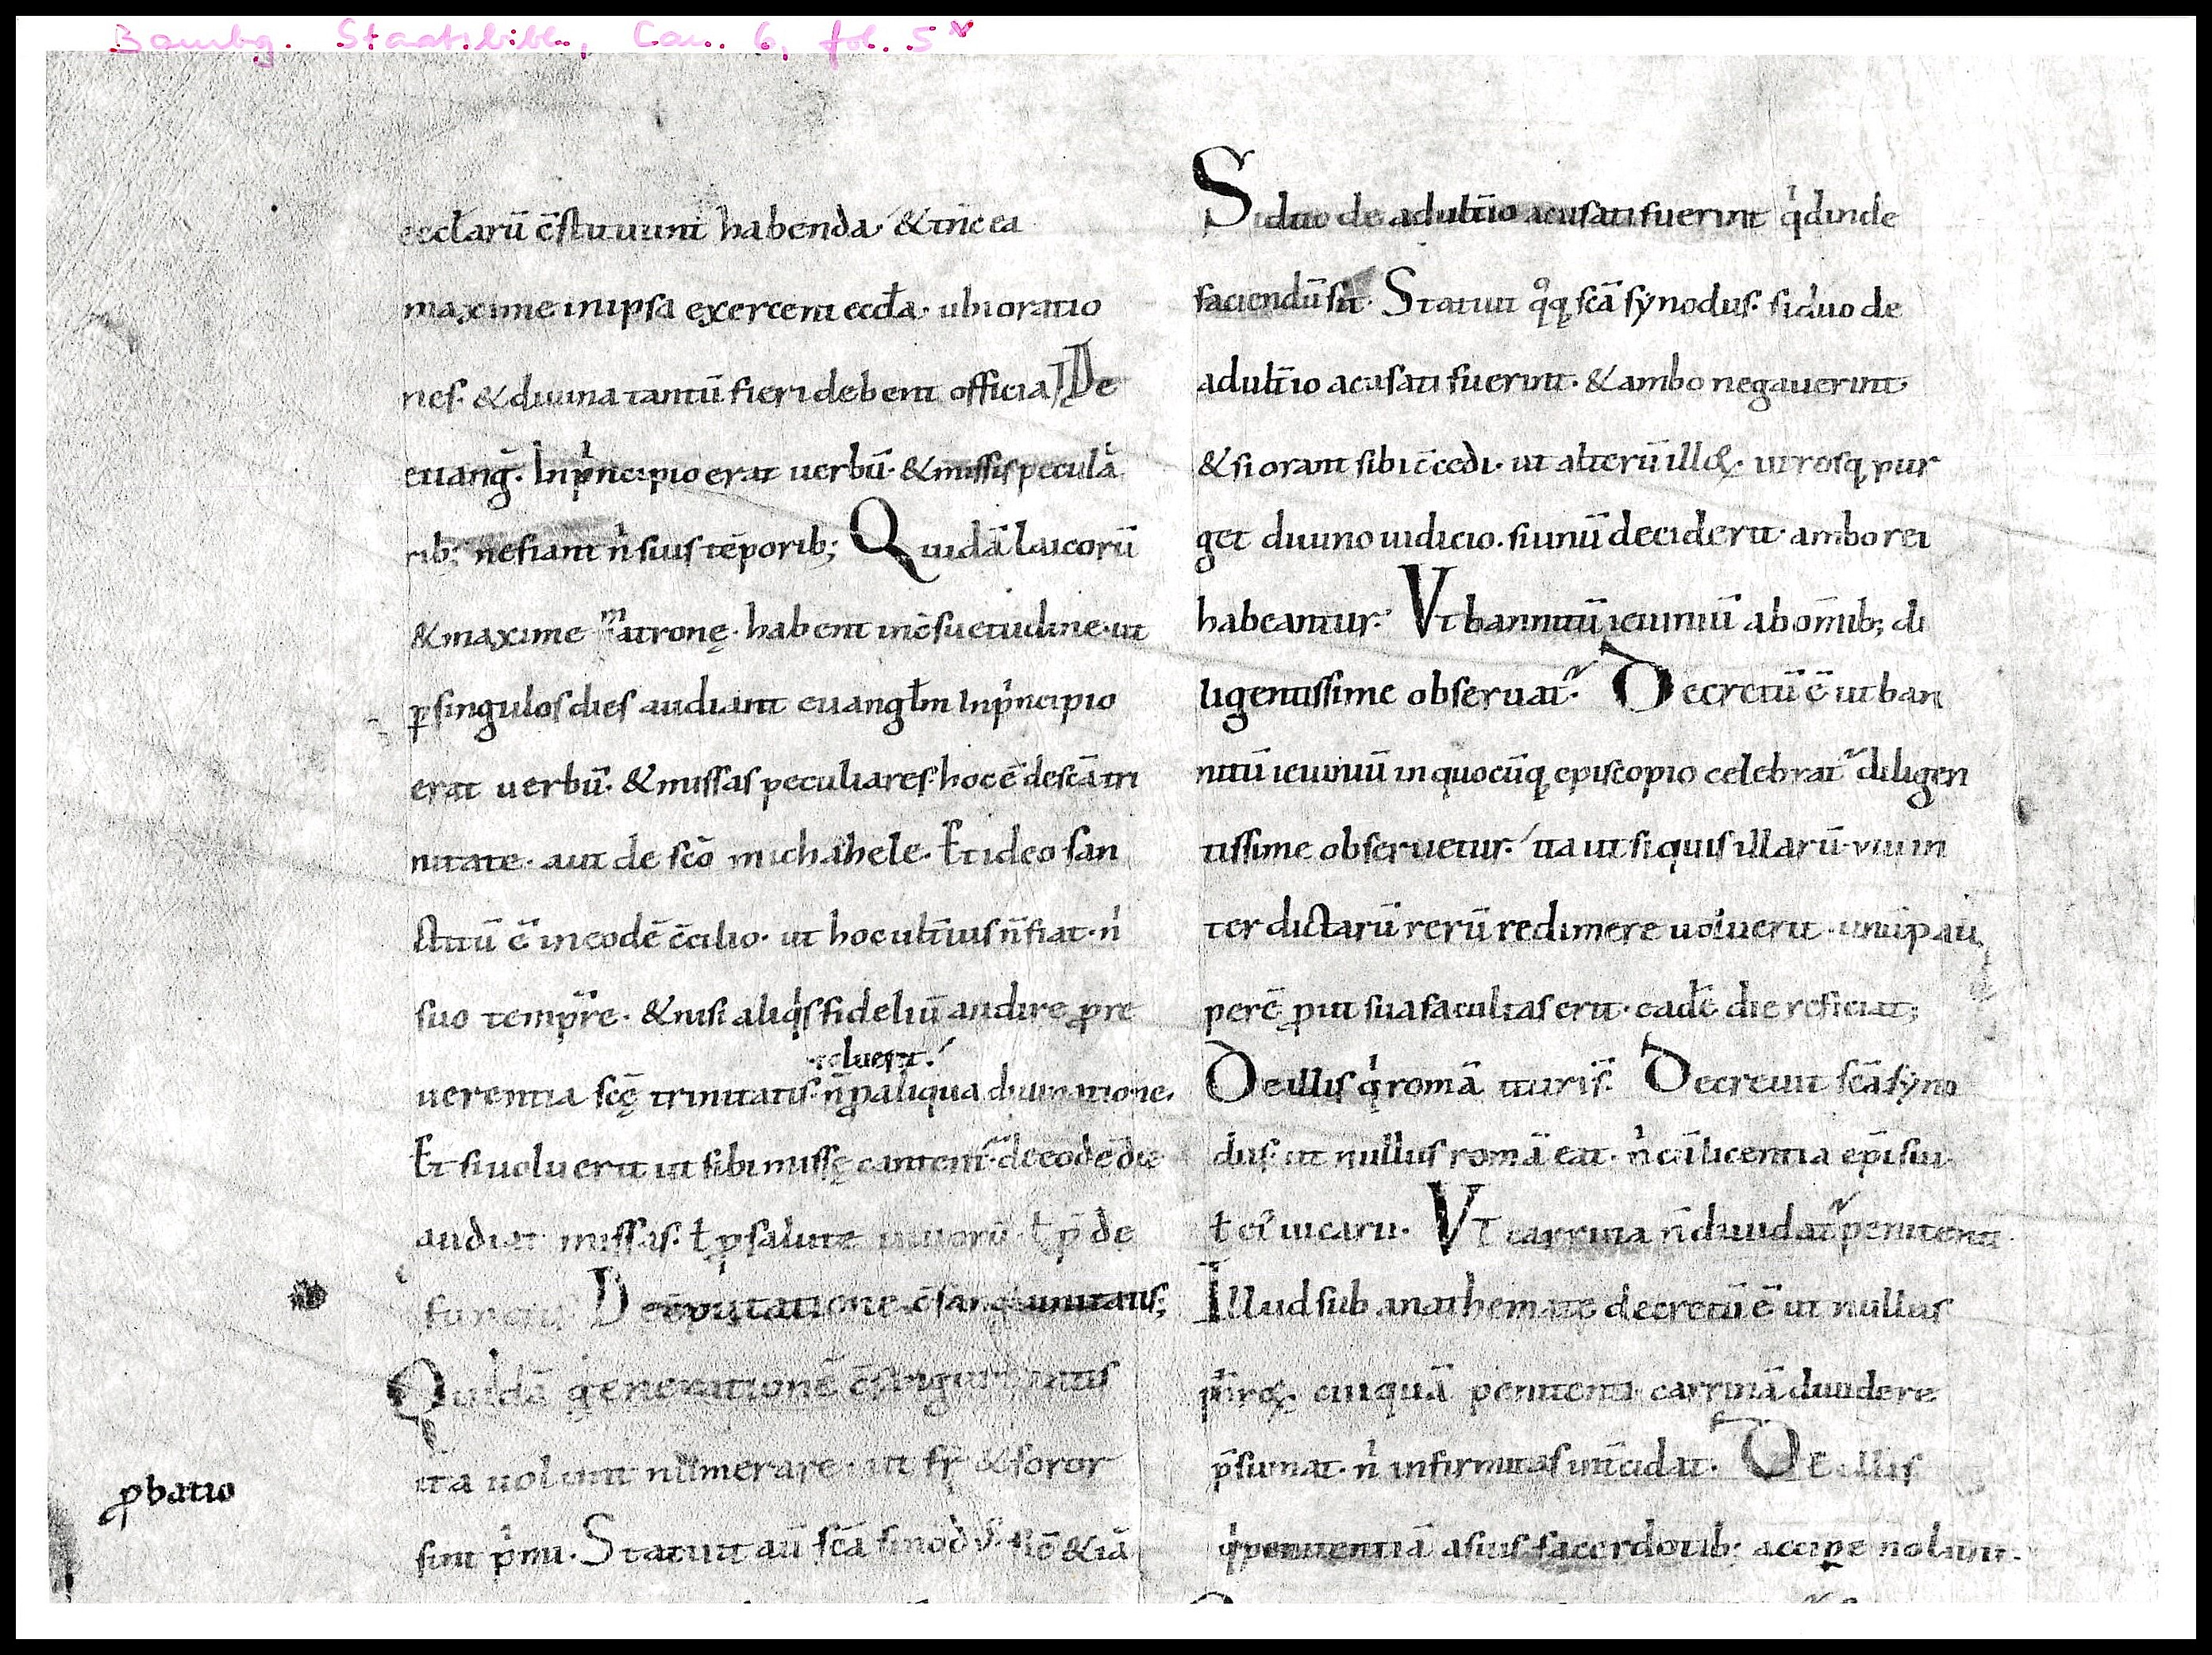 Bambg. Staatsbibl., Can. 6, fol. 5v
ęccłarū c̄stituunt habenda. & tn̄ ea
maxime in ipsa exercent ecclła. ubi oratio
nes. & diuina tantū fieri debent officia; De
euanḡ. In pͥncipio erat uerbū. & missis peculia
rib; ne fiant nͥ suis tēporib; Quidā laicorū
& maxime matronę. habent in c̄suetudine. ut
ꝑ singulos dies audiant euangłm In pͥncipio
erat uerbū. & missas peculiares. hoc ē de scā tri
nitate. aut de scō michahele. Et ideo san
ctitū ē in eodē c̄cilio. ut hoc ult̄ius n̄ fiat. nͥ
suo temp̄re. & nisi aliqͥs fideliū audire ꝓ re
uoluerit.
uerentia scę̄ trinitatis. n̄ ꝓ aliqua diuinatione.
Et si uoluerit ut sibi missę cantent̄. de eodē die
audiat missas. ł ꝓ salute uiuorū. ł ꝓ de
functis. De cōputatione c̄sanguinitatis;
Quidā generationē c̄sanguinitatis
ita uolunt numerare. ut fr̄ & soror
ꝓbatio
sint pͥmi. Statuit aū scā sinodus. sic̄ & iā
Si duo de adult̄io acusati fuerint qͥd inde
faciendū sit. Statuit qͦqꝫ scā synodus. si duo de
adult̄io acusati fuerint. & ambo negauerint
& si orant sibi c̄cedi. ut alterū illoꝝ. utrosqꝫ pur
get diuino iudicio. si unū deciderit. ambo rei
habeantur. Vt bannitū ieiuniū ab om̄ib; di
ligentissime obseruat᷑. Decretū ē ut ban
nitū ieiuniū in quocūqꝫ episcopio celebrat᷑ diligen
tissime obseruetur. ita ut si quis illarū. uiii in
terdictarū rerū redimere uoluerit. unū pau
perē ꝓut sua facultas erit. eadē die reficiat;
De illis qͥ romā ituri s̄. Decreuit scā syno
dus. ut nullus romā eat. nͥ cū licentia ep̄i sui
ł ei᾽ uicarii. Vt carrina n̄ diuidat᷑ penitenti
Illud sub anathemate decretū ē ut nullus
p̄rōꝝ cuiquā penitenti carrinā diuidere
p̄sumat. nͥ infirmitas int̄cidat. De illis
qͥ penitentiā a suis sacerdotib; accipe nolunt.